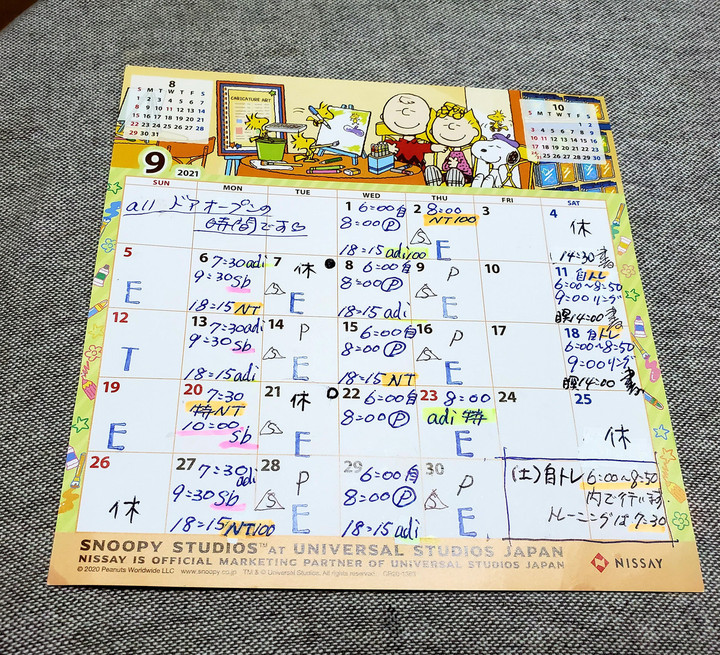 8
S M T W T F S
1 2 3 4 5 6 7
8 9 10 11 12 13 14
15 16 17 18 19 20 21
22 23 24 25 26 27 28
29 30 31
CARICATURE ART
10
S M T W T F S
3 4 5 6 7 8 9
10 11 12 13 14 15 16
25 26 27 28 29 30
9 2021
SUN MON TUE WED THU FRI SAT
all ドアオープンの
時間です
1 6:00自
8:00Ⓟ
18:15adi100
2 8:00
NT100
E
3
4
休
14:30
5
E
6 7:30adi
9:30Sb
18:15 NT
7 休
E
8 6:00自
8:00Ⓟ
18:15adi
9 P
E
10
11 自トレ
6:00~8:50
9:00リング
14:00
12
T
13 7:30adi
9:30Sb
18:15adi
14 P
E
15 6:00自
8:00Ⓟ
18:15NT
16 P
E
17
18 自トレ
6:00~8:50
9:00リング
14:00
19
E
20 7:30
特NT
10:00
Sb
21 休
E
22 6:00自
8:00Ⓟ
23 8:00
adi 特
E
24
25
休
26
休
27 7:30adi
9:30Sb
18:15NT100
28 P
E
29 6:00自
8:00Ⓟ
18:15adi
30 P
E
(土)自トレ 6:00~8:50
内で行います
トレーニングは7:30
SNOOPY STUDIOS™ AT UNIVERSAL STUDIOS JAPAN
NISSAY IS OFFICIAL MARKETING PARTNER OF UNIVERSAL STUDIOS JAPAN
© 2020 Peanuts Worldwide LLC www.snoopy.co.jp TM & © Universal Studios. All rights reserved.
NISSAY